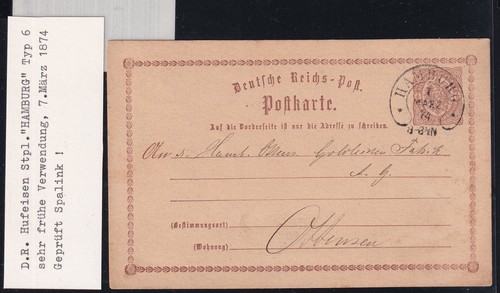 D.R. Hufeisen Stpl."HAMBURG" Typ 6
sehr frühe Verwendung, 7.März 1874
Geprüft Spalink !
Deutsche Reichs-Post.
Postkarte.
Auf die Vorderseite ist nur die Adresse zu schreiben.
HAMBURG
7
MÄRZ
74
An
A. G.
(Bestimmungsort)
Ottensen
(Wohnung)